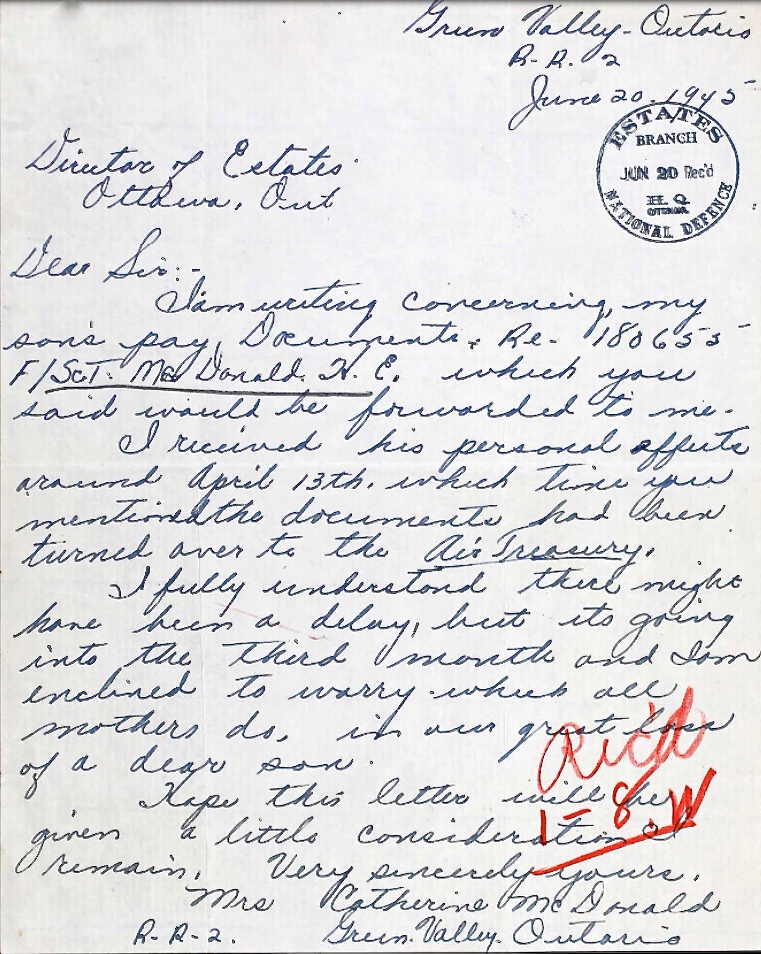 Green Valley - Ontario
R. R. 2
June 20. 1945
ESTATES
BRANCH
JUN 20 Rec'd
H. Q.
OTTAWA
NATIONAL DEFENCE
Director of Estates
Ottawa, Ont
Dear Sir:-
I am writing concerning, my
son's pay, Documents. Re- 180655
F/SGT. Mac Donald. H. E. which you
said would be forwarded to me.
I received his personal effects
around April 13th. which time you
mentioned the documents had been
turned over to the Air Treasury.
I fully understand there might
have been a delay, but its going
into the third month and I am
enclined to worry - which all
mothers do, in our great loss
of a dear son.
Hope this letter will be
given a little consideration I
remain. Very sincerely yours.
Mrs Catherine McDonald
R-R-2. Green Valley. Ontario
Rec'd
1-8.W